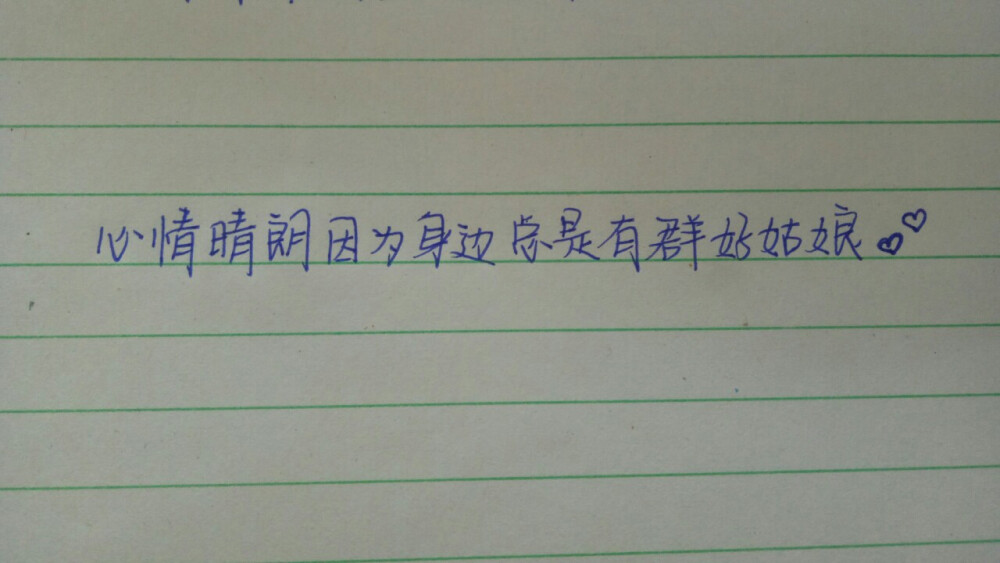 心情晴朗因为身边总是有群好姑娘